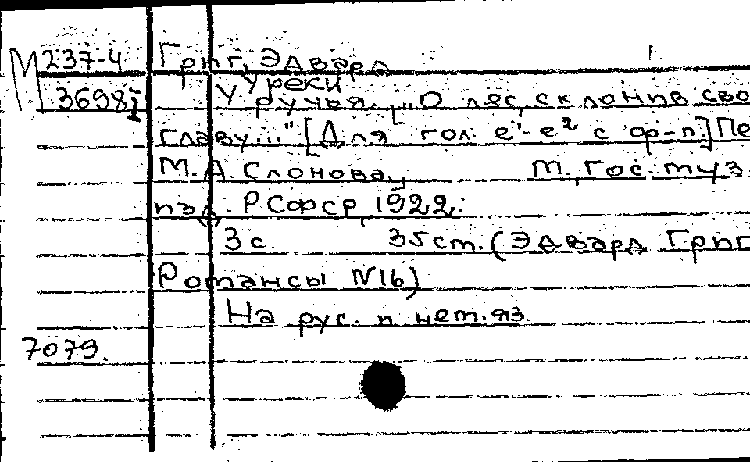 М 237-4 Григ, Эдвард
3698 I У реки
У ручья. „О лес, склонив сво
главу..." [Для гол. e'-e² с ор-п] Пе
М. А. Слонова, М., Гос. муз.
изд. РСФСР, 1922.
3 с. 35 cm. (Эдвард Григ
Романсы №16)
На рус. и нем. яз.
7079.